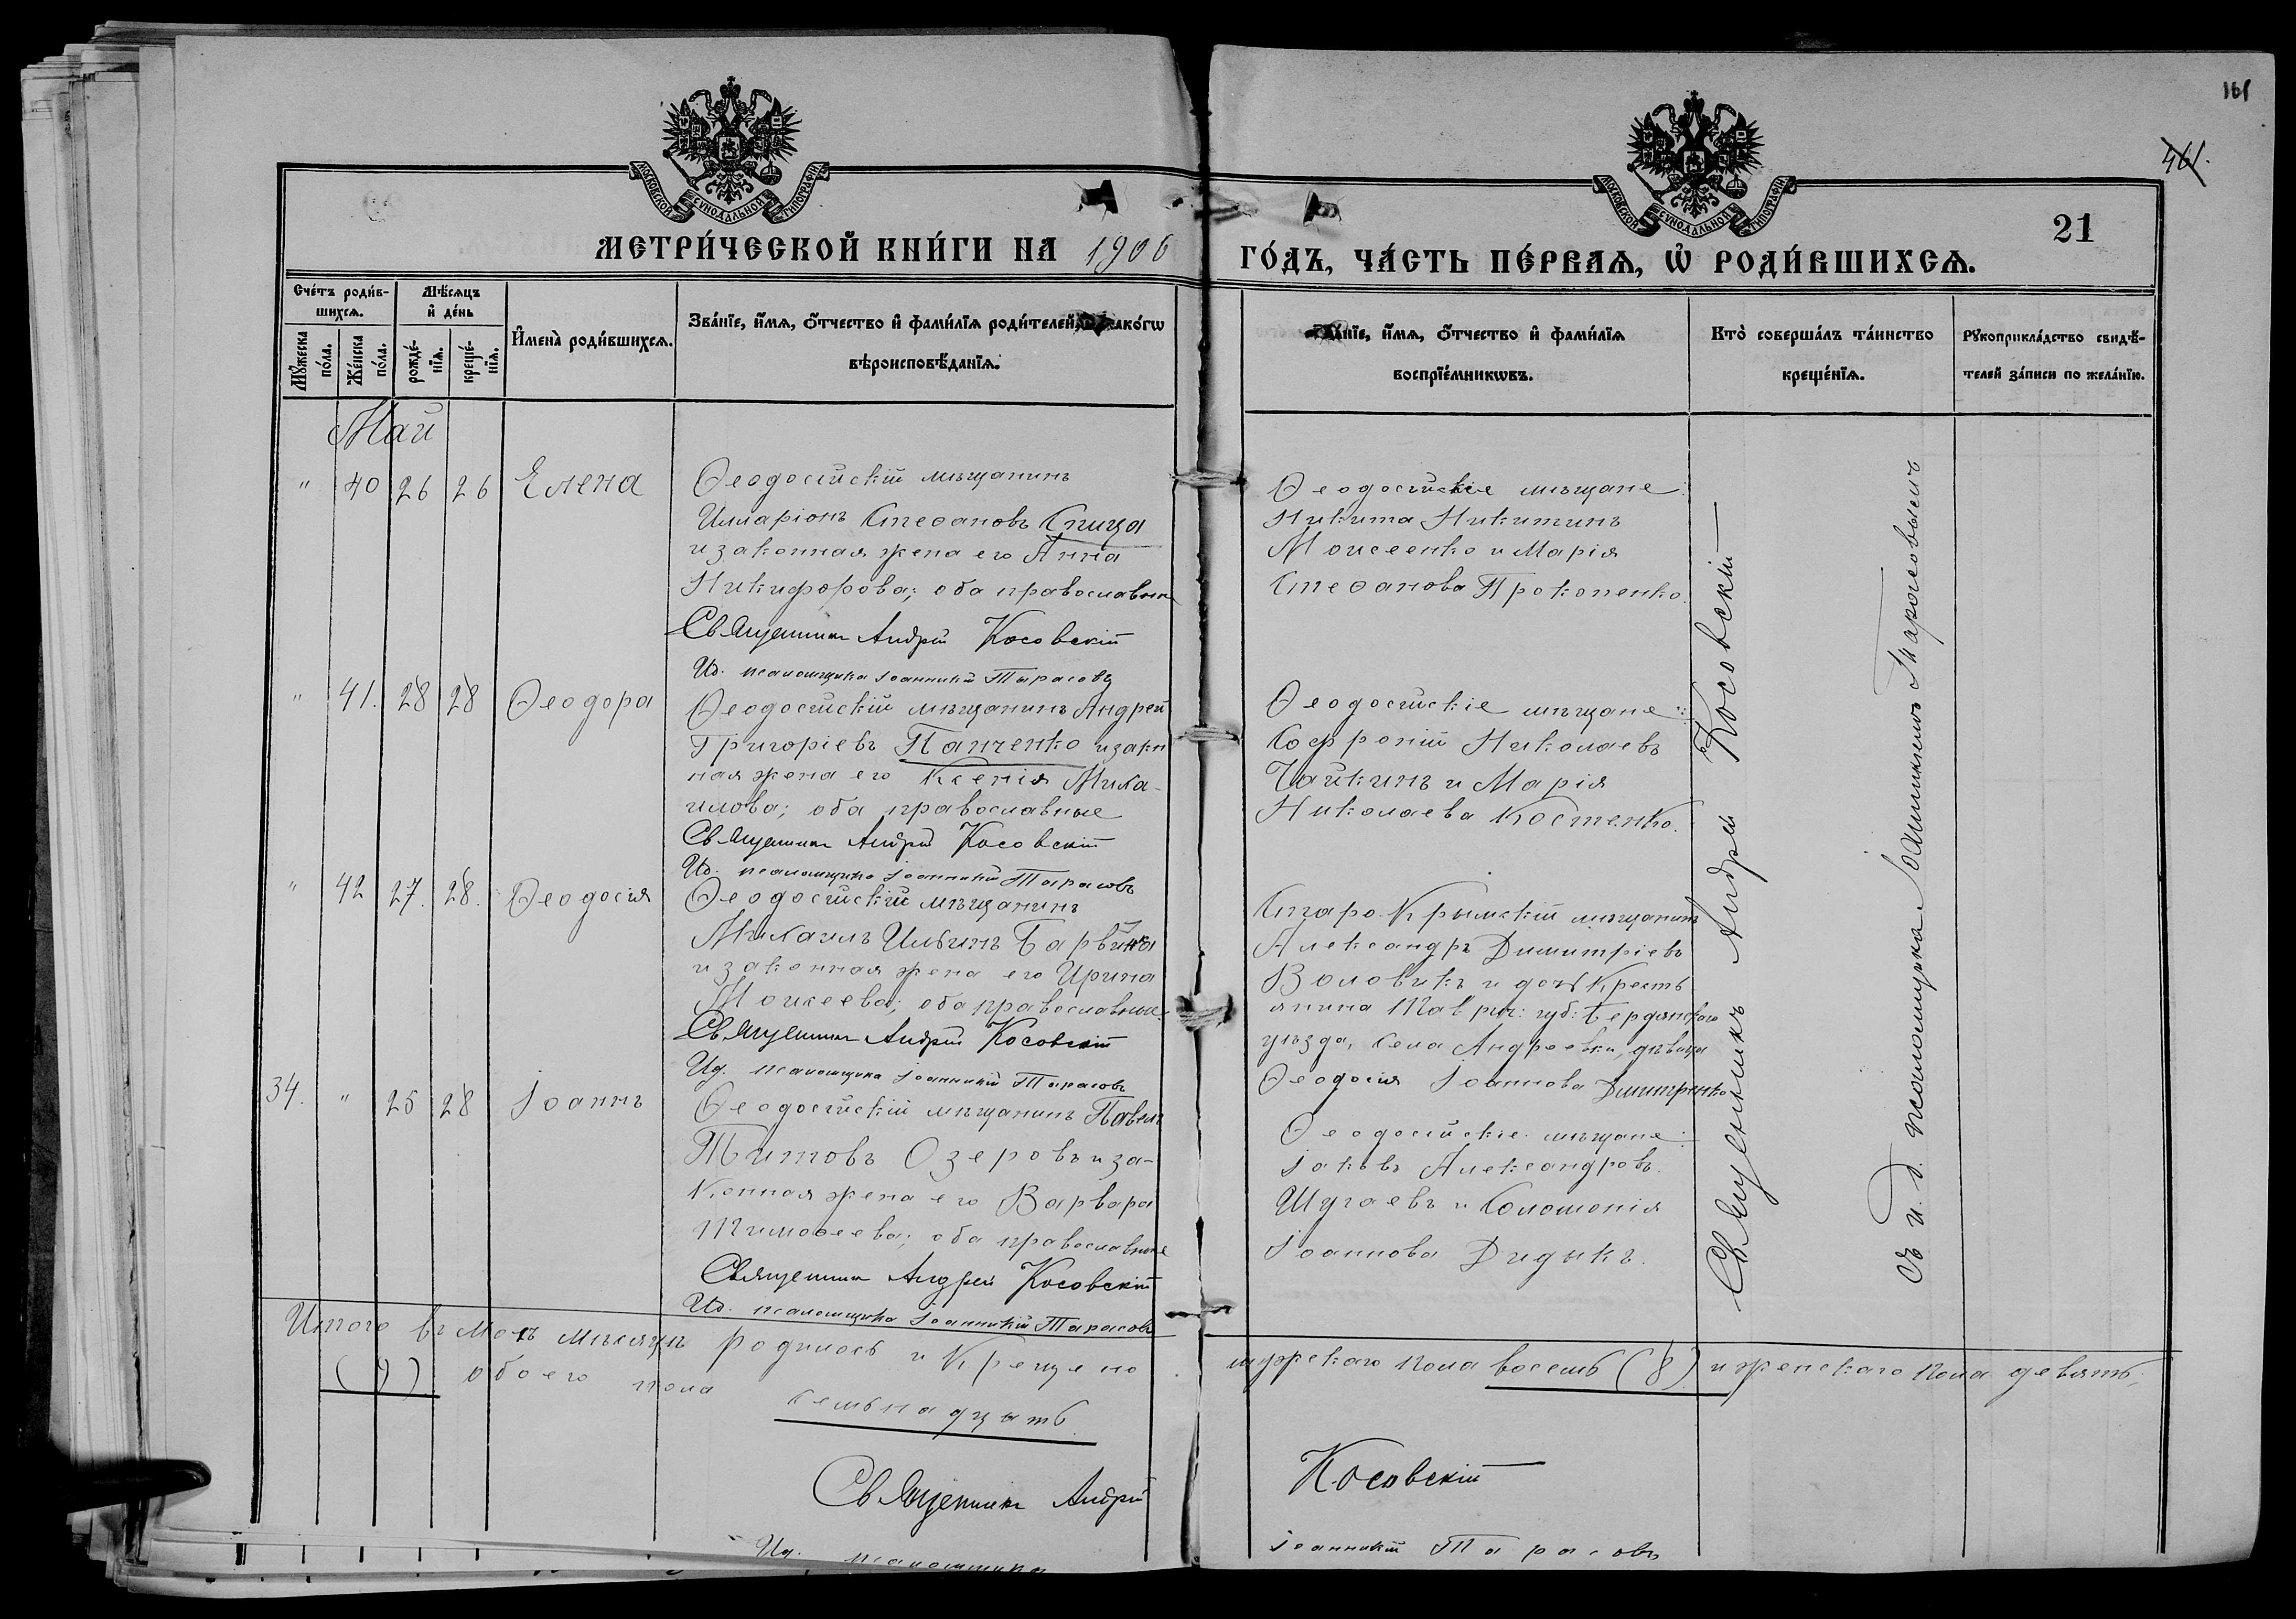 161
461.
МОСКОВСКОЙ СУНОДАЛЬНОЙ ТИПОГРАФІИ
МОСКОВСКОЙ СУНОДАЛЬНОЙ ТИПОГРАФІИ
21
МЕТРИ́ЧЕСКОЙ КНИ́ГИ НА 1906
ГО́ДЪ, ЧА́СТЬ ПЕ́РВАѦ, Ѡ҆ РОДИ́ВШИХСѦ.
Сче́тъ роди́в-
шихсѧ.
Мꙋ́жеска
по́ла.
Же́нска
по́ла.
Мѣ́сѧцъ
и҆ де́нь
рожде́-
нїѧ.
креще́-
нїѧ.
И҆мена̀ роди́вшихсѧ.
Зва́нїе, и҆́мѧ, ѻ҆́тчество и҆ фами́лїѧ роди́телей, и҆ како́гѡ
вѣроисповѣ́данїѧ.
Зва́нїе, и҆́мѧ, ѻ҆́тчество и҆ фами́лїѧ
воспрїе́мникѡвъ.
Кто̀ соверша́лъ та́инство
креще́нїѧ.
Рꙋкоприкла́дство свидѣ́-
телей за́писи по жела́нїю.
Май
" 40 26 26 Елена
Ѳеодосійскій мѣщанинъ
Илларіонъ Стеѳановъ Спица
и законная жена его Анна
Никифорова; оба православные
Священникъ Андрей Косовскій
Ид. псаломщика Іоанникій Тарасовъ
Ѳеодосійскіе мѣщане:
Никита Никитинъ
Моисеенко и Марія
Стеѳанова Прокопенко.
" 41. 28 28 Ѳеодора
Ѳеодосійскій мѣщанинъ Андрей
Григоріевъ Панченко и закн
ная жена его Ксенія Миха-
илова; оба православные
Священникъ Андрей Косовскій
Ид. псаломщика Іоанникій Тарасовъ
Ѳеодосійскіе мѣщане:
Софроній Николаевъ
Чайкинъ и Марія
Николаева Костенко.
" 42 27. 28. Ѳеодосія
Ѳеодосійскій мѣщанинъ
Михаилъ Ильинъ
и законная жена его Ирина
Моисеева; оба православные
Священникъ Андрей Косовскій
Ид. псаломщика Іоанникій Тарасовъ
Старо-Крымскій мѣщанинъ
Александръ Димитріевъ
Воловикъ и дочь Кресть
янина Таврич: губ: Бердянскаго
уѣзда, села Андреевки, дѣвица
Ѳеодосія Іоаннова Димитренко
34. " 25 28 Іоаннъ
Ѳеодосійскій мѣщанинъ Павелъ
Титовъ Озеровъ и за-
конная жена его Варвара
Тимоѳеева; оба православные
Священникъ Андрей Косовскій
Ид. псаломщика Іоанникій Тарасовъ
Ѳеодосійскіе мѣщане:
Іаковъ Александровъ
Шугаевъ и Соломонія
Іоаннова Дидыкъ.
Священникъ Андрей Косовскій
съ и. д. псаломщика Іоанникіемъ Тарасовымъ
Итого въ маѣ мѣсяцѣ родилось и крещено
мужскаго пола восемь (8) и женскаго пола девять,
(9) обоего пола
семьнадцать.
Священникъ Андрей
Косовскій
Ид. псаломщика
Іоанникій Тарасовъ